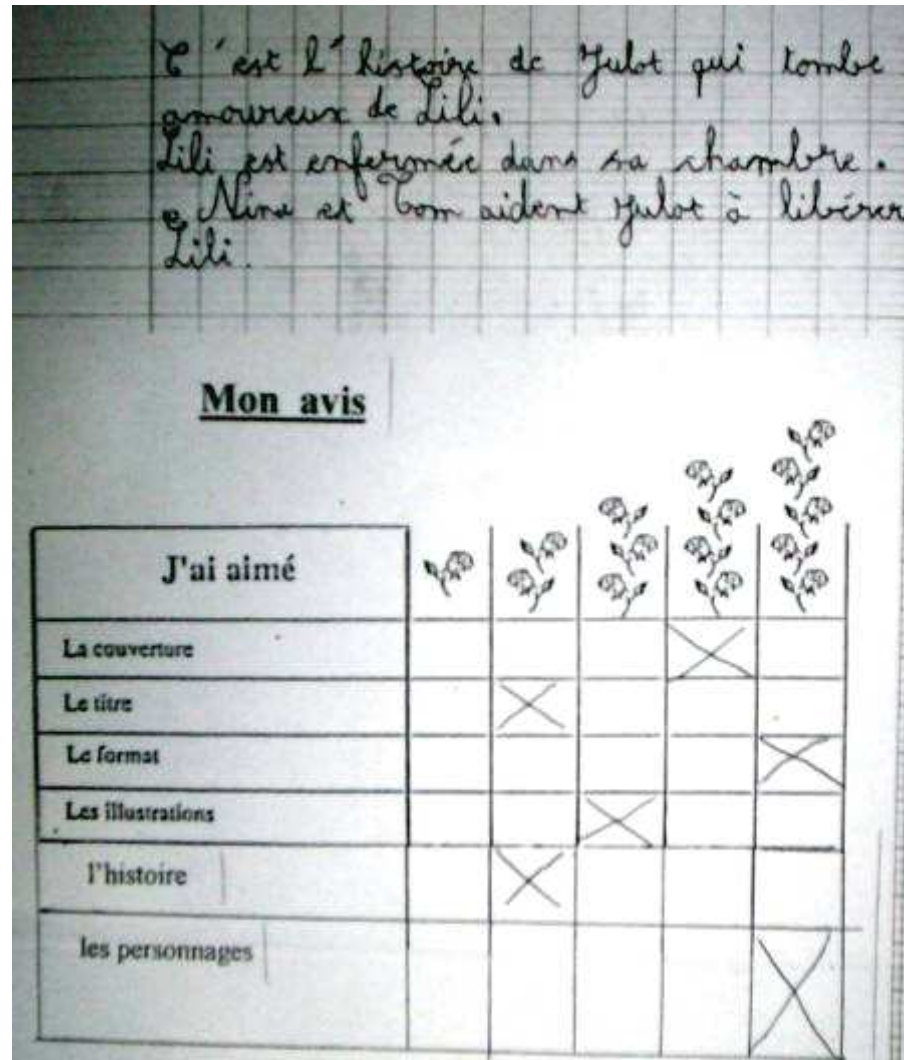 C'est l'histoire de Julot qui tombe
amoureux de Lili.
Lili est enfermée dans sa chambre.
Nina et Tom aident Julot à libérer
Lili.
Mon avis
J'ai aimé
La couverture
Le titre
Le format
Les illustrations
l'histoire
les personnages